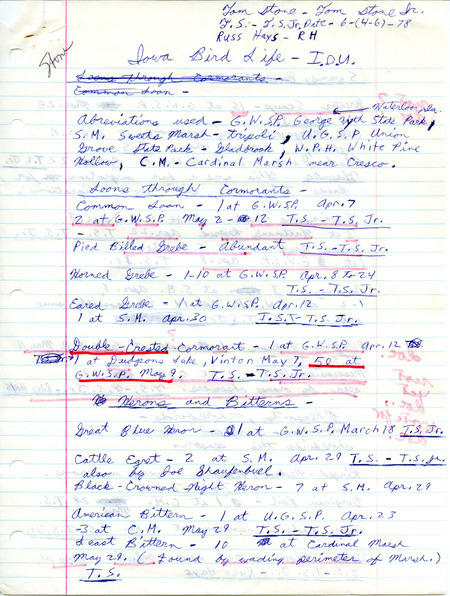 Tom Stone - Tom Stone Jr.
T.S. - T.S. Jr. Date - 6-(4-6)-78
Russ Hays - RH
Stone
Iowa Bird Life - I.O.U.
Loons Through Cormorants -
Common Loon -
Waterloo, Ia.
Abreviations used - G.W.S.P. George Wyth State Park,
S.M. Sweets Marsh - Tripoli, U.G.S.P Union
Grove State Park - Gladbrook, W.P.H. White Pine
Hollow, C.M. - Cardinal Marsh near Cresco.
Loons through Cormorants -
Common Loon - 1 at G.W.S.P. Apr. 7
2 at G.W.S.P. May 2 - 12 T.S. - T.S. Jr.
Pied Billed Grebe - Abundant T.S. - T.S. Jr.
Horned Grebe - 1-10 at G.W.S.P. Apr. 8 to 24
T.S. - T.S. Jr.
Eared Grebe - 1 at G.W.S.P. Apr. 12
1 at S.M. Apr. 30 T.S. - T.S. Jr.
Double-Crested Cormorant - 1 at G.W.S.P. Apr. 12
1 at Dudgeons Lake, Vinton May 7, 50 at
G.W.S.P. May 9. T.S. - T.S. Jr.
Herons and Bitterns -
Great Blue Heron - 1 at G.W.S.P. March 18 T.S. Jr.
Cattle Egret - 2 at S.M. Apr. 29 T.S. - T.S. Jr.
also by Joe Shaufenbuel.
Black-Crowned Night Heron - 7 at S.M. Apr. 29
American Bittern - 1 at U.G.S.P. Apr. 23
-3 at C.M. May 29 T.S. - T.S. Jr.
Least Bittern - 10 at Cardinal Marsh
May 29. (Found by wading perimeter of Marsh.)
T.S.